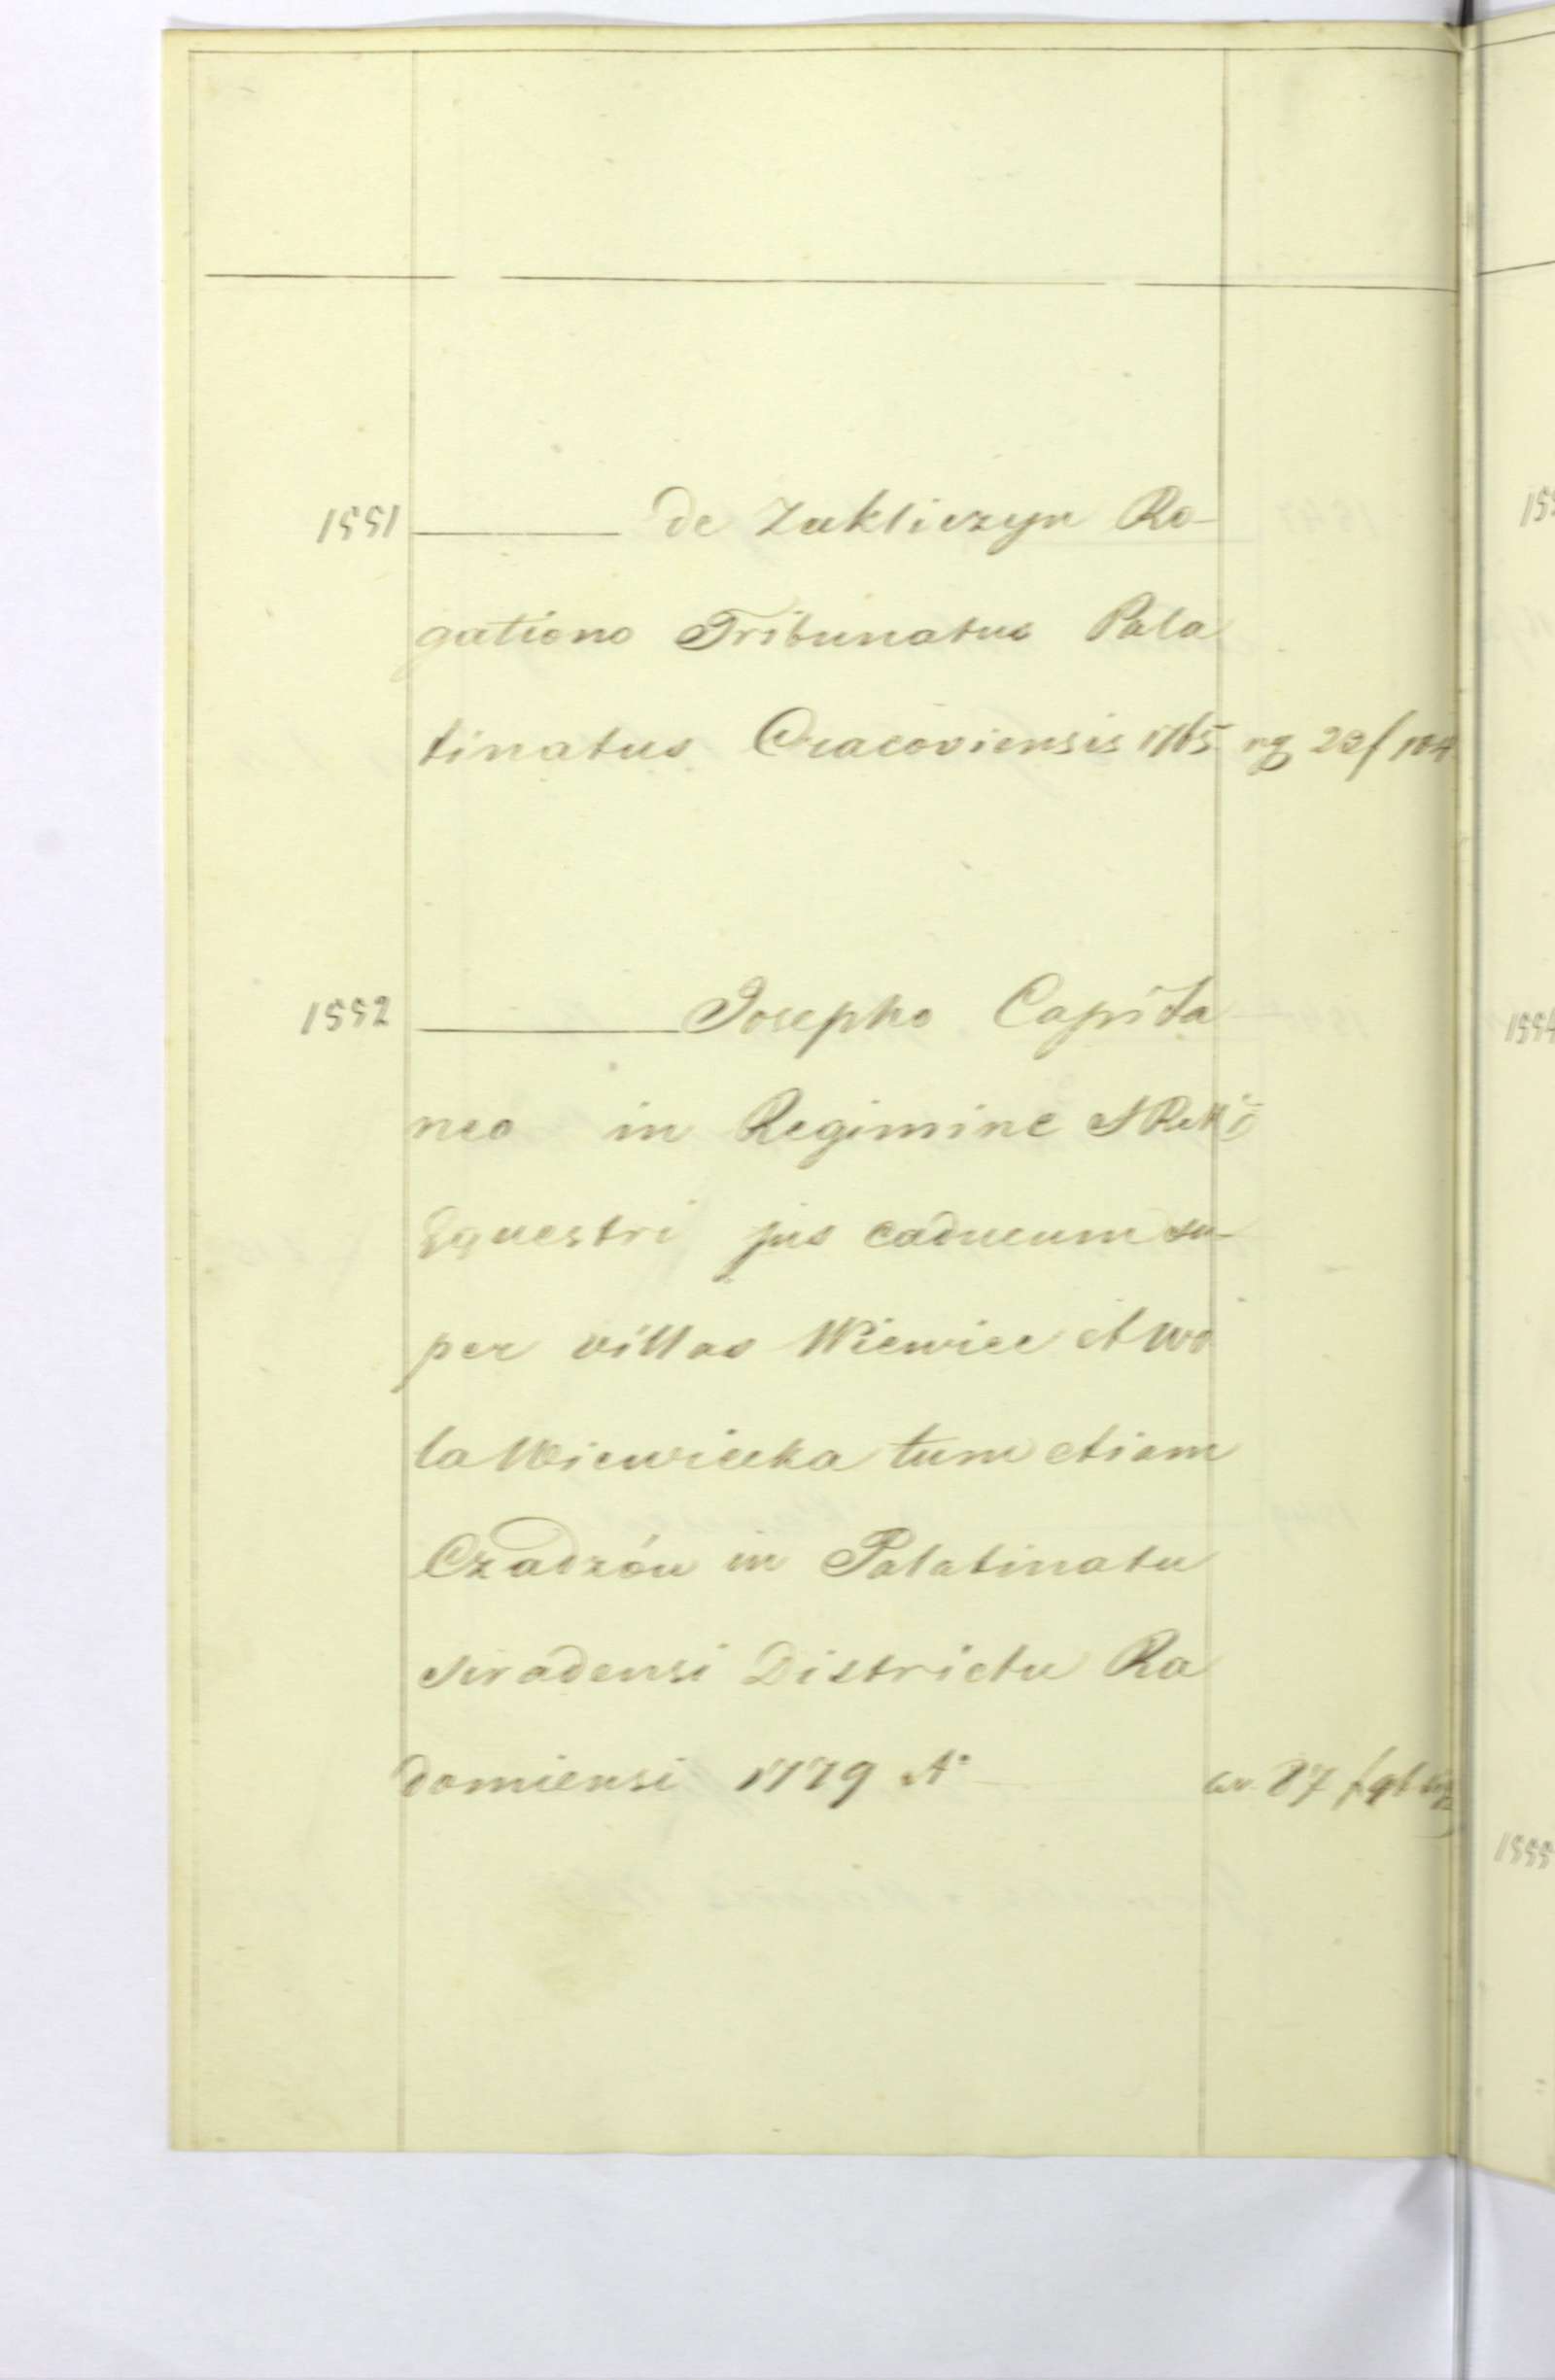 1551 de Zakliczyn Ro-
gationo Tribunatus Pala
tinatus Cracoviensis 1765 rg 22 f 104
1552 Josepho Capita
neo in Regimine
Equestri jus caducum su-
per villas Wiewiec et Wo
la Wiewiecka tum etiam
Czadrów in Palatinatu
Siradensi Districtu Ra
domiensi 1779 Aº 87 f
155
1554
1555